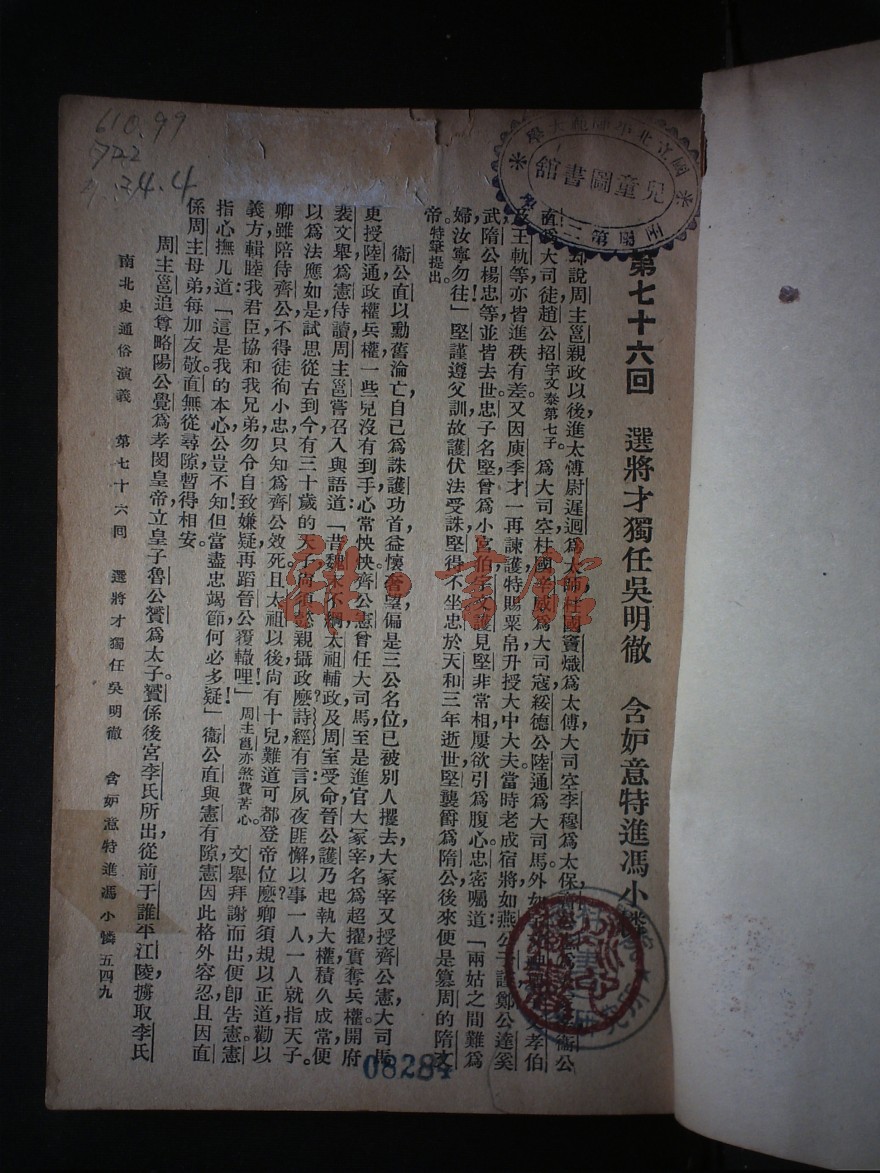 第七十六回　選將才獨任吳明徹　含妒意特進馮小憐
却說周主邕親政以後，進太傅尉遲迥爲太師，柱國竇熾爲太傅，大司空李穆爲太保，
直爲大司徒，趙公招宇文泰第七子。爲大司空，柱國辛威爲大司寇，綏德公陸通爲大司馬，外如
王軌等，亦皆進秩有差。又因庾季才一再諫護，特賜粟帛，升授大中大夫。當時老成宿將，如燕公于謹，鄭公達奚
武，隋公楊忠等，並皆去世。忠子名堅，曾爲小宮伯，宇文護見堅非常相，屢欲引爲腹心。忠密囑道：「兩姑之間難爲
婦，汝寧勿往！」堅謹遵父訓，故護伏法受誅，堅得不坐。忠於天和三年逝世，堅襲爵爲隋公，後來便是篡周的隋文
帝。特筆提出。
衞公直以勳舊淪亡，自己爲誅護功首，益懷奢望，偏是三公名位，已被別人攫去，大冢宰又授齊公憲，大司馬
更授陸通，政權兵權，一些兒沒有到手，心常怏怏。齊公憲曾任大司馬，至是進官大冢宰，名爲超擢，實奪兵權。開府
裴文舉爲憲侍讀，周主邕嘗召入與語道：「昔魏末不綱，太祖輔政，及周室受命，晉公護乃起執大權，積久成常，便
以爲法應如是。試思從古到今，有三十歲的天子，尚須懿親攝政麽？詩經有言：夙夜匪懈，以事一人，一人就指天子。
卿雖陪侍齊公，不得徒徇小忠，只知爲齊公效死。且太祖以後，尚有十兒，難道可都登帝位麽？卿須規以正道，勸以
義方，輯睦我君臣，協和我兄弟，勿令自致嫌疑，再蹈晉公覆轍哩！」周主邕亦煞費苦心。文舉拜謝而出，便卽告憲。憲
指心撫几道：「這是我的本心，公豈不知，但當盡忠竭節，何必多疑！」衞公直與憲有隙，憲因此格外容忍，且因直
係周主母弟，每加友敬，直無從尋隙，暫得相安。
周主邕追尊略陽公覺爲孝閔皇帝，立皇子魯公贇爲太子。贇係後宮李氏所出，從前于謹平江陵，擄取李氏
南北史通俗演義　第七十六回　選將才獨任吳明徹　含妒意特進馮小憐　五四九
610.99
722
34.4
國立北平師範大學
兒童圖書館
08284